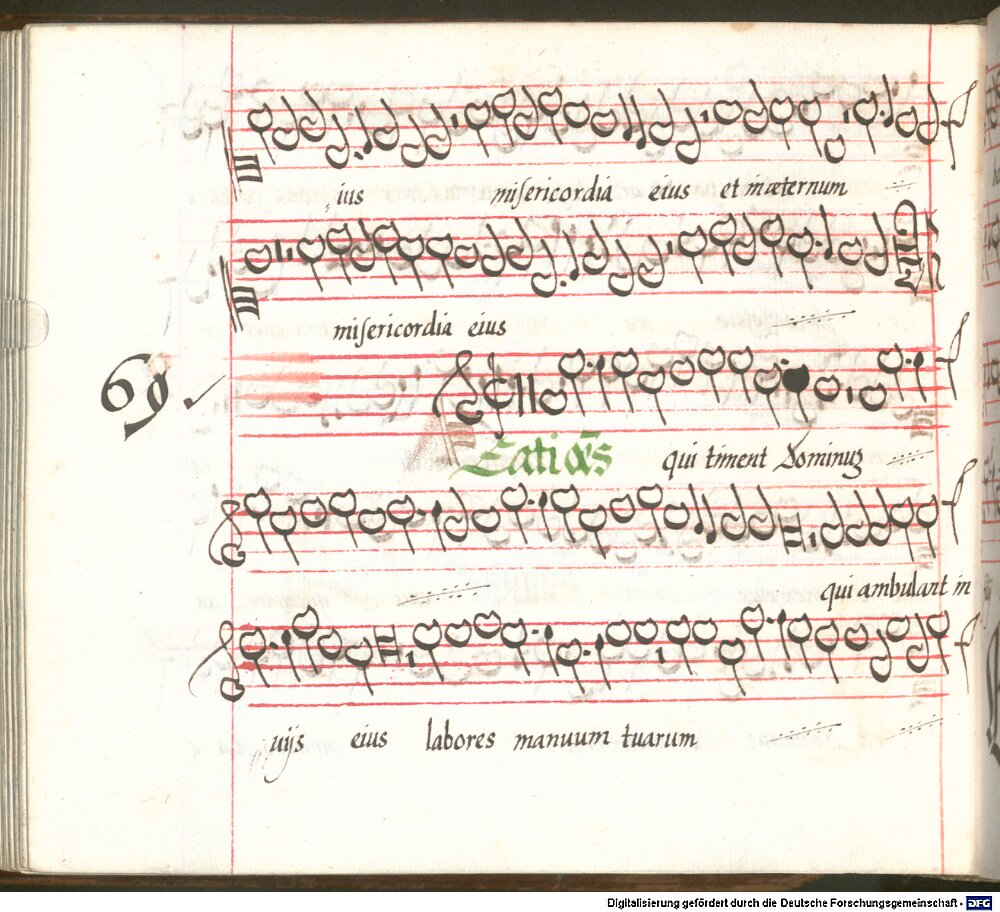 ius misericordia eius et in æternum
misericordia eius
69
qui timent Dominuȝ
qui ambulant in
uijs eius labores manuum tuarum
Digitalisierung gefördert durch die Deutsche Forschungsgemeinschaft - DFG